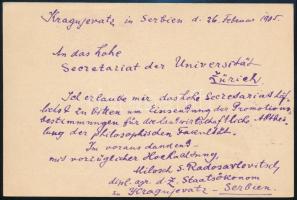 Kragujevatz in Serbien d. 26. Februar 1905.
An das hohe
Secretariat der Universität
Zürich.
Ich erlaube mir das hohe Secretariat höf-
lichst zu bitten um Einsendung der Promotions-
bestimmungen für die landwirtschaftliche Abthei-
lung der philosophischen Facultät.
Im voraus dankend
mit vorzüglicher Hochachtung,
Milosch S. Radosavlovitsch,
dipl. agr. d. Z. Staatsökonom
in Kragujevatz – Serbien.